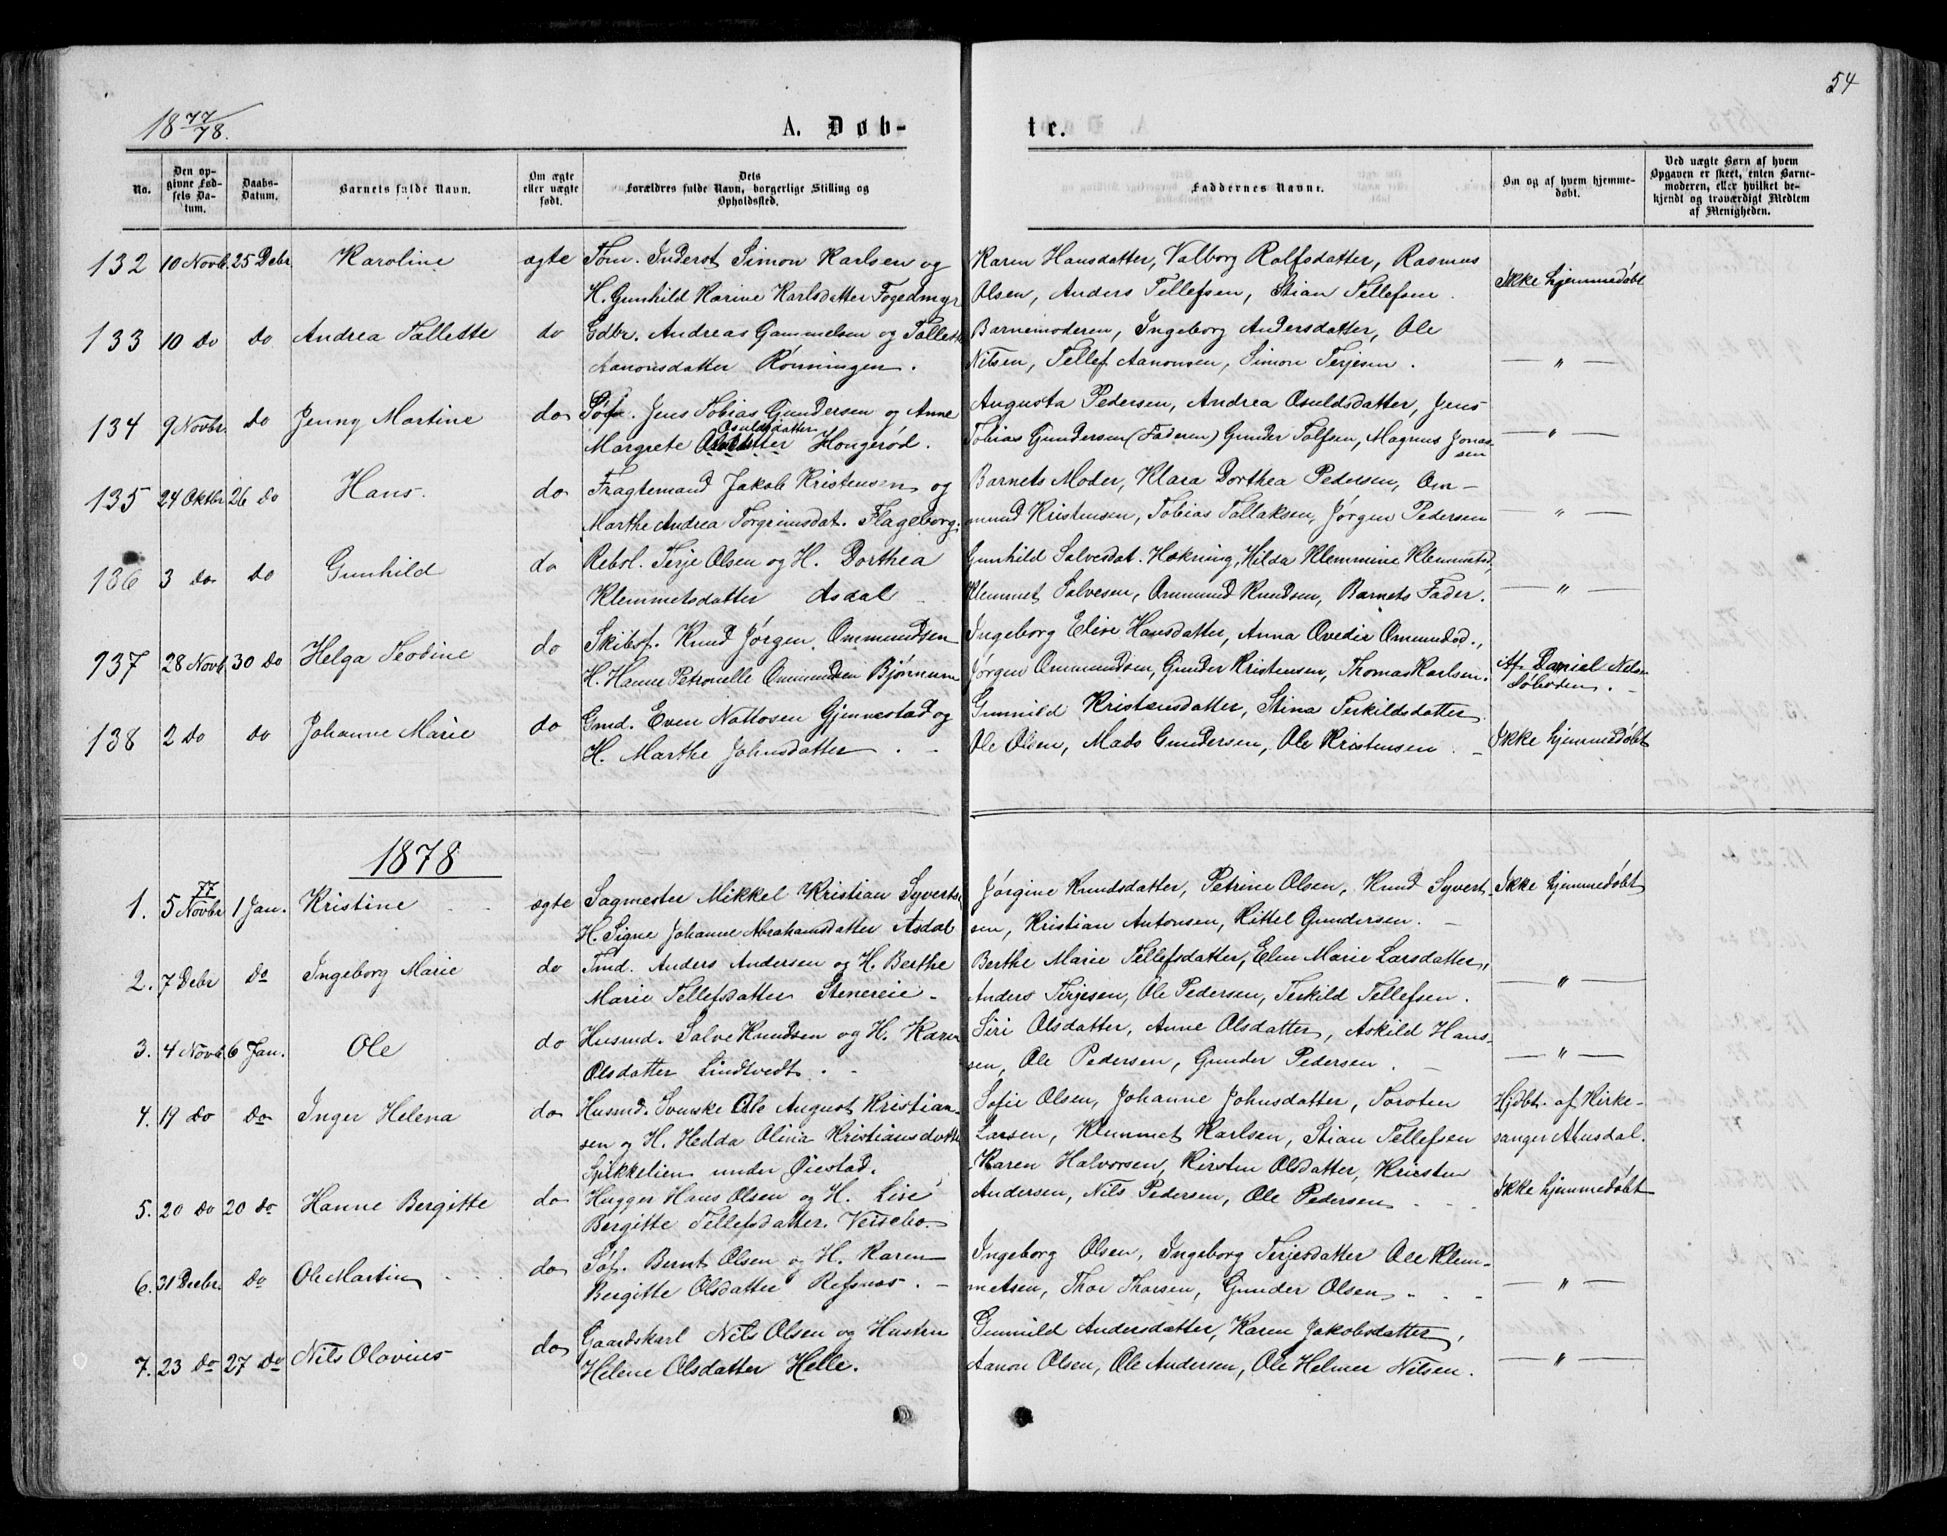 54
18 77/78.
A. Døb-
te.
No.
Den op-
givne Fød-
sels Da-
tum.
Daabs-
Datum.
Barnets fulde Navn.
Om ægte
eller uægte
født.
Dets
Forældres fulde Navn, borgerlige Stilling og
Opholdssted.
Faddernes Navne.
Om og af hvem hjemme-
døbt.
Ved uægte Børn af hvem
Opgaven er skeet, enten Barne-
moderen, eller hvilket be-
kjendt og troværdigt Medlem
af Menigheden.
132 10 Novb. 25 Debr Karoline ægte Tøm. Inderst Simon Karlsen og
H. Gunhild Karine Karlsdatter Fogedmyr
Karen Hansdatter, Valborg Rolfsdatter, Rasmus
Olsen, Anders Tellefsen, Stian Tellefsen.
Ikke hjemmedøbt
133 10 do do Andrea Tallette do Gdbr. Andreas Gammelsen og Tallette
Aanonsdatter Rønningen.
Barnemoderen, Ingeborg Andersdatter, Ole
Nilsen, Tellef Aanonsen, Simon Terjesen.
— " —
134 9 Novbr. do Jenny Martine do Søf. Jens Tobias Gundersen og Anne
Osuldsdatter
Margrete Hougerød.
Augusta Pedersen, Andrea Osuldsdatter, Jens
Tobias Gundersen (Faderen) Gunder Tolfsen, Magnus Jonas-
sen
— " —
135 24 Oktbr 26 do Hans. do Fragtemand Jakob Kristensen og
Marthe Andrea Torgrimsdat. Flageborg.
Barnets Moder, Klara Dorthea Pedersen, Om-
mund Kristensen, Tobias Tallaksen, Jørgen Pedersen
— " —
136 3 do do Gunhild do Rebsl. Terje Olsen og H. Dorthea
Klemmetsdatter Asdal
Gunhild Salvesdat. Hækning, Hilda Klemmine Klemmetsd,
Klemmet Salvesen, Ommund Knudsen, Barnets Fader.
— " —
137 28 Novb. 30 do Helga Teodine do Skibsf. Knud Jørgen Ommundsen
H. Hanne Petronelle Ommundsen Bjønnum
Ingeborg Elise Hansdatter, Anna Ovedie Omundsd.,
Jørgen Ommundsen, Gunder Kristensen, Thomas Karlsen.
Af Daniel Nilsen
138 2 do do Johanne Marie do Gmd. Even Nottosen Gjennestad og
H. Marthe Johnsdatter.
Gunnild Kristensdatter, Stina Terkildsdatter
Ole Olsen, Mads Gundersen, Ole Kristensen.
Ikke hjemmedøbt
1878
77
1. 5 Novbr 1 Jan. Kristine ægte Sagmester Mikkel Kristian Syverts.
H. Signe Johanne Abrahamsdatter Asdal
Jørgine Knudsdatter, Petrine Olsen, Knud Syvert-
sen, Kristian Antonsen, Kittel Gundersen.
Ikke hjemmedøbt
2. 7 Debr do Ingeborg Marie do Tmd. Anders Andersen og H. Berthe
Marie Tellefsdatter Stenereie.
Berthe Marie Tellefsdatter, Elen Marie Larsdatter,
Anders Terjesen, Ole Pedersen, Terkild Tellefsen.
— " —
3. 4 Novb. 6 Jan. Ole do Husmd. Salve Knudsen og H. Karen
Olsdatter Lindtvedt.
Siri Olsdatter, Anne Olsdatter, Askild Hans-
sen, Ole Pedersen, Gunder Pedersen.
— " —
4. 19 do do Inger Helena do Husmd. Svenske Ole August Kristian-
sen og H. Hedda Olina Kristiansdatter
Spikkelien under Øiestad.
Sofie Olsen, Johanne Johnsdatter, Toroten
Larsen, Klemmet Karlsen, Stian Tellefsen
Hjdbt. af Kirke-
sanger Aausdal.
5. 20 do 20 do Hanne Bergitte do Hugger Hans Olsen og H. Lise
Bergitte Tellefsdatter. Vessebo.
Karen Halvorsen, Kirsten Olsdatter, Kristen
Andersen, Nils Pedersen, Ole Pedersen
Ikke hjemmedøbt
6. 31 Decbr. do Ole Martin do Søf. Bernt Olsen og H. Karen
Bergitte Olsdatter Refsnes.
Ingeborg Olsen, Ingeborg Terjesdatter Ole Klem-
metsen, Thor Thorsen, Gunder Olsen
— " —
7. 23 do 27 do Nils Olavius do Gaardskarl Nils Olsen og Hustru
Helene Olsdatter Helle.
Gunnild Andersdatter, Karen Jakobsdatter,
Aanon Olsen, Ole Andersen, Ole Helmer Nilsen.
— " —